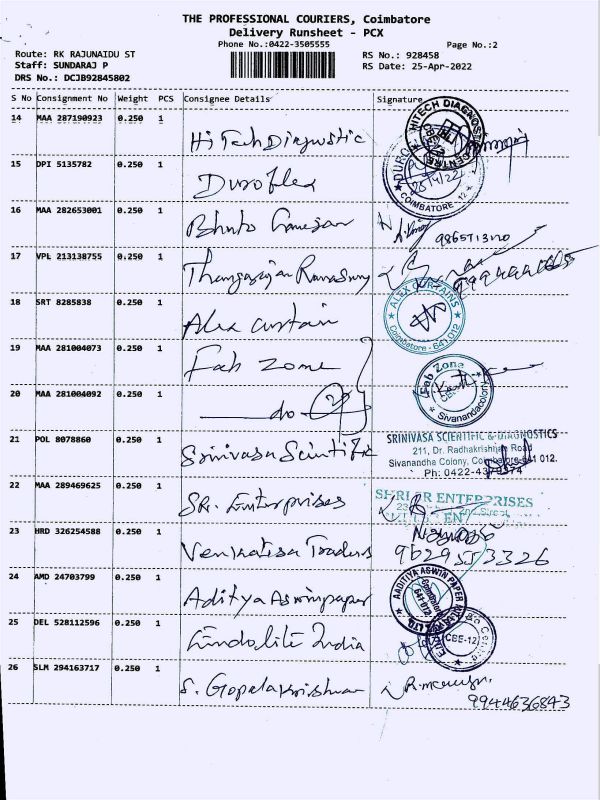 THE PROFESSIONAL COURIERS, Coimbatore
Delivery Runsheet - PCX
Phone No.:0422-3505555
Page No.:2
Route: RK RAJUNAIDU ST
RS No.: 928458
Staff: SUNDARAJ P
RS Date: 25-Apr-2022
DRS No.: DCJB92845802
S No Consignment No Weight PCS Consignee Details Signature
14 MAA 287190923 0.250 1 Hi Tech Diagnostic
HITECH DIAGNOSTIC CENTRE
15 DPI 5135782 0.250 1 Duroflex
DURO COIMBATORE - 12
16 MAA 282653001 0.250 1
17 VPL 213138755 0.250 1
18 SRT 8285838 0.250 1 Alex curtain
ALEX CURTAINS Coimbatore - 641 012
19 MAA 281004073 0.250 1 Fab Zone
20 MAA 281004092 0.250 1 do
Fab Zone CBE Sivanandacolony
21 POL 8078860 0.250 1 Srinivasa Scintific
SRINIVASA SCIENTIFIC & DIAGNOSTICS
211, Dr. Radhakrishnan Road
Sivanandha Colony, Coimbatore-641 012.
Ph: 0422-4379374
22 MAA 289469625 0.250 1 SR. Enterprises
ENTERPRISES
23 HRD 326254588 0.250 1 Venkatisa Traders
9629553326
24 AMD 24703799 0.250 1 Aditya Aswinpaper
AADITIYA ASWIN PAPER
Coimbatore 641 012
25 DEL 528112596 0.250 1 Endolite India
CBE-12
26 SLM 294163717 0.250 1 S. Gopalakrishnan
9944636843